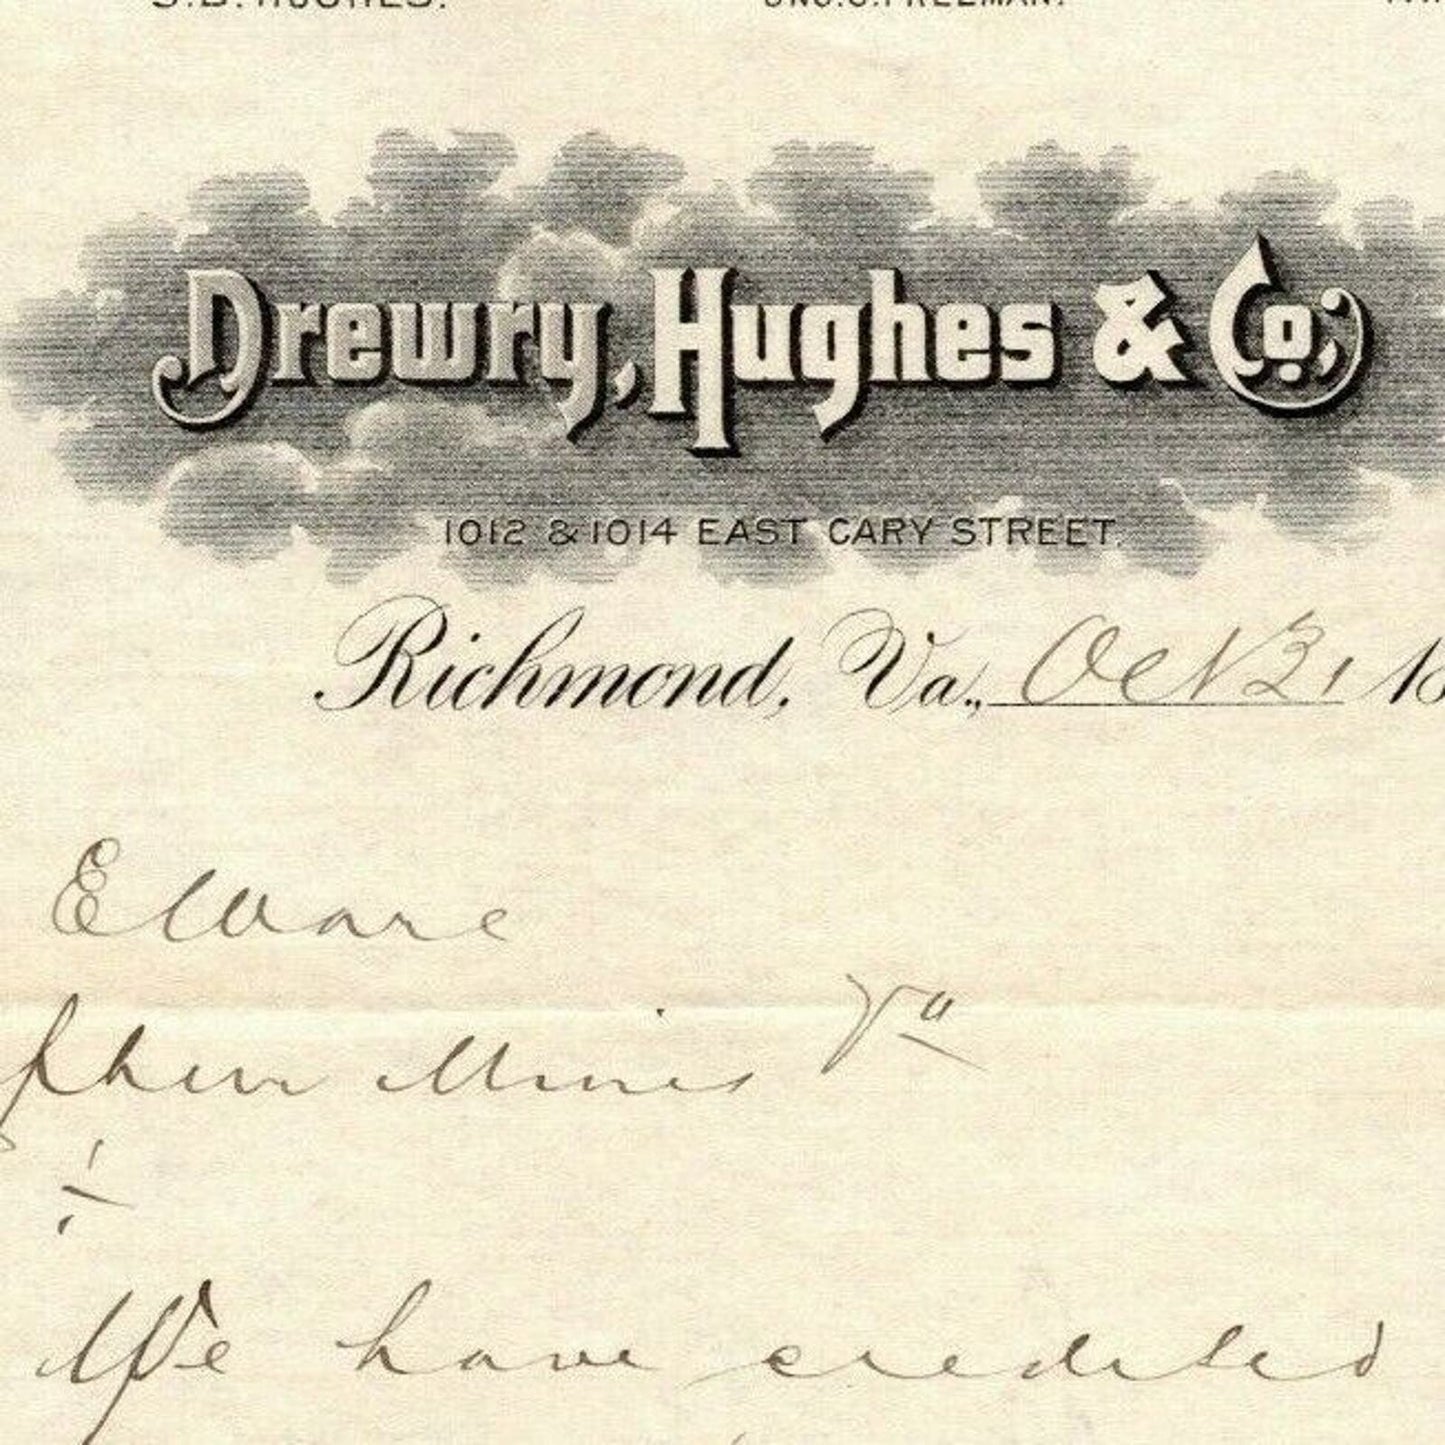 S.B. HUGHES. JNO.C.FREEMAN.
Drewry, Hughes & Co.,
1012 & 1014 EAST CARY STREET.
Richmond, Va., Oct 31 18
E Ware
Mines Va
We have credited